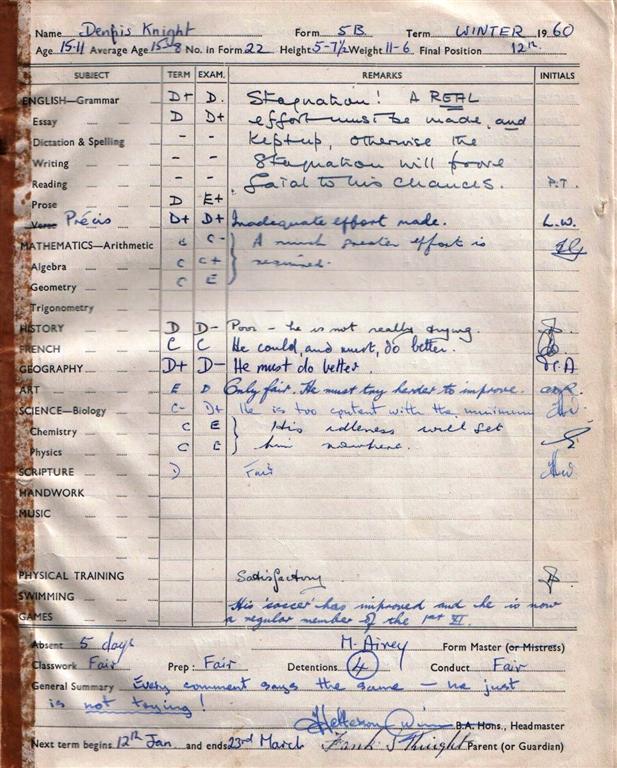 Name Dennis Knight Form 5B Term WINTER 1960
Age 15-11 Average Age 15-8 No. in Form 22 Height 5-7½ Weight 11-6 Final Position 12th
SUBJECT TERM EXAM. REMARKS INITIALS
ENGLISH—Grammar D+ D. Stagnation! A REAL
Essay D D+ effort must be made, and
Dictation & Spelling - - kept up, otherwise the
Writing - - stagnation will prove
Reading - - fatal to his chances. P.T.
Prose D E+
Verse Précis D+ D+ Inadequate effort made. L.W.
MATHEMATICS—Arithmetic d C- A much greater effort is
Algebra C C+ required.
Geometry C E
Trigonometry
HISTORY D D- Poor - he is not really trying.
FRENCH C C He could, and must, do better.
GEOGRAPHY D+ D- He must do better.
ART E D Only fair. He must try harder to improve.
SCIENCE—Biology C- D+ He is too content with the minimum
Chemistry C E His idleness will get
Physics C E him nowhere.
SCRIPTURE D Fair
HANDWORK
MUSIC
PHYSICAL TRAINING Satisfactory
SWIMMING His 'soccer' has improved and he is now
GAMES a regular member of the 1st XI.
Absent 5 days M. Airey Form Master (or Mistress)
Classwork Fair Prep: Fair Detentions 4 Conduct Fair
General Summary Every comment says the same - he just
is not trying!
B.A. Hons., Headmaster
Next term begins 12th Jan and ends 23rd March Frank S Knight Parent (or Guardian)